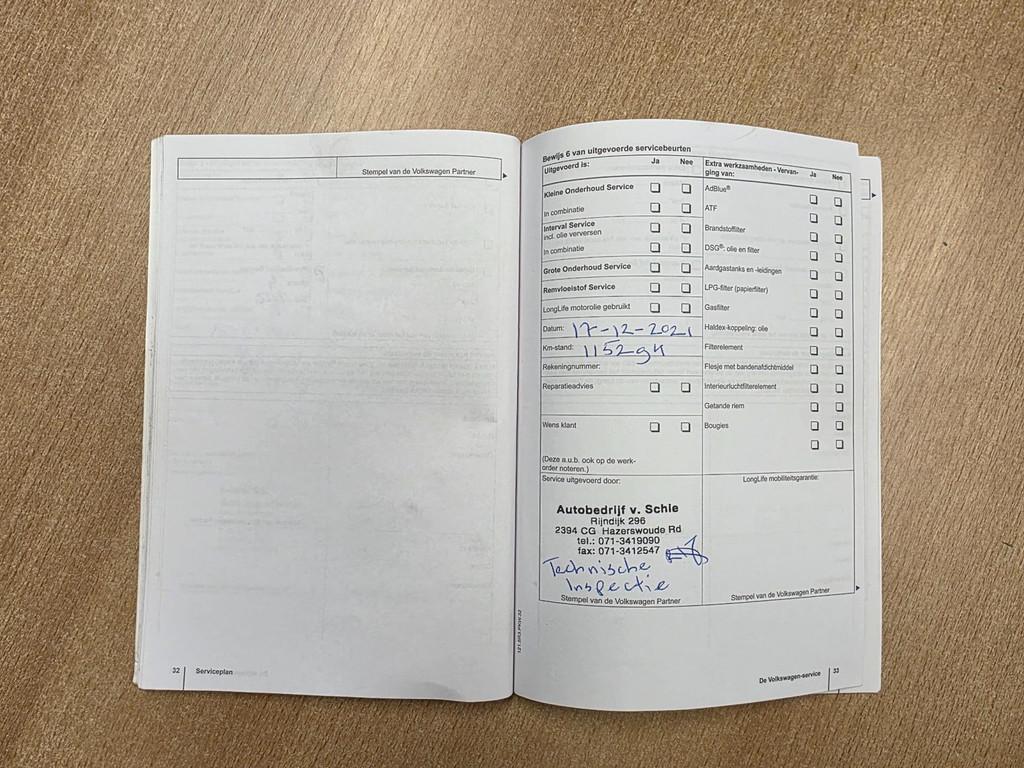 Stempel van de Volkswagen Partner
32 Serviceplan
Bewijs 6 van uitgevoerde servicebeurten
Uitgevoerd is: Ja Nee
Kleine Onderhoud Service
In combinatie
Interval Service
incl. olie verversen
In combinatie
Grote Onderhoud Service
Remvloeistof Service
LongLife motorolie gebruikt
Datum: 17-12-2021
Km-stand:
Rekeningnummer:
Reparatieadvies
Wens klant
(Deze a.u.b. ook op de werk-
order noteren.)
Service uitgevoerd door:
Autobedrijf v. Schie
Rijndijk 296
2394 CG Hazerswoude Rd
tel.: 071-3419090
fax: 071-3412547
Technische
Inspectie
Stempel van de Volkswagen Partner
Extra werkzaamheden - Vervan-
ging van: Ja Nee
AdBlue®
ATF
Brandstoffilter
DSG®: olie en filter
Aardgastanks en -leidingen
LPG-filter (papierfilter)
Gasfilter
Haldex-koppeling: olie
Filterelement
Flesje met bandenafdichtmiddel
Interieurluchtfilterelement
Getande riem
Bougies
LongLife mobiliteitsgarantie:
Stempel van de Volkswagen Partner
De Volkswagen-service 33